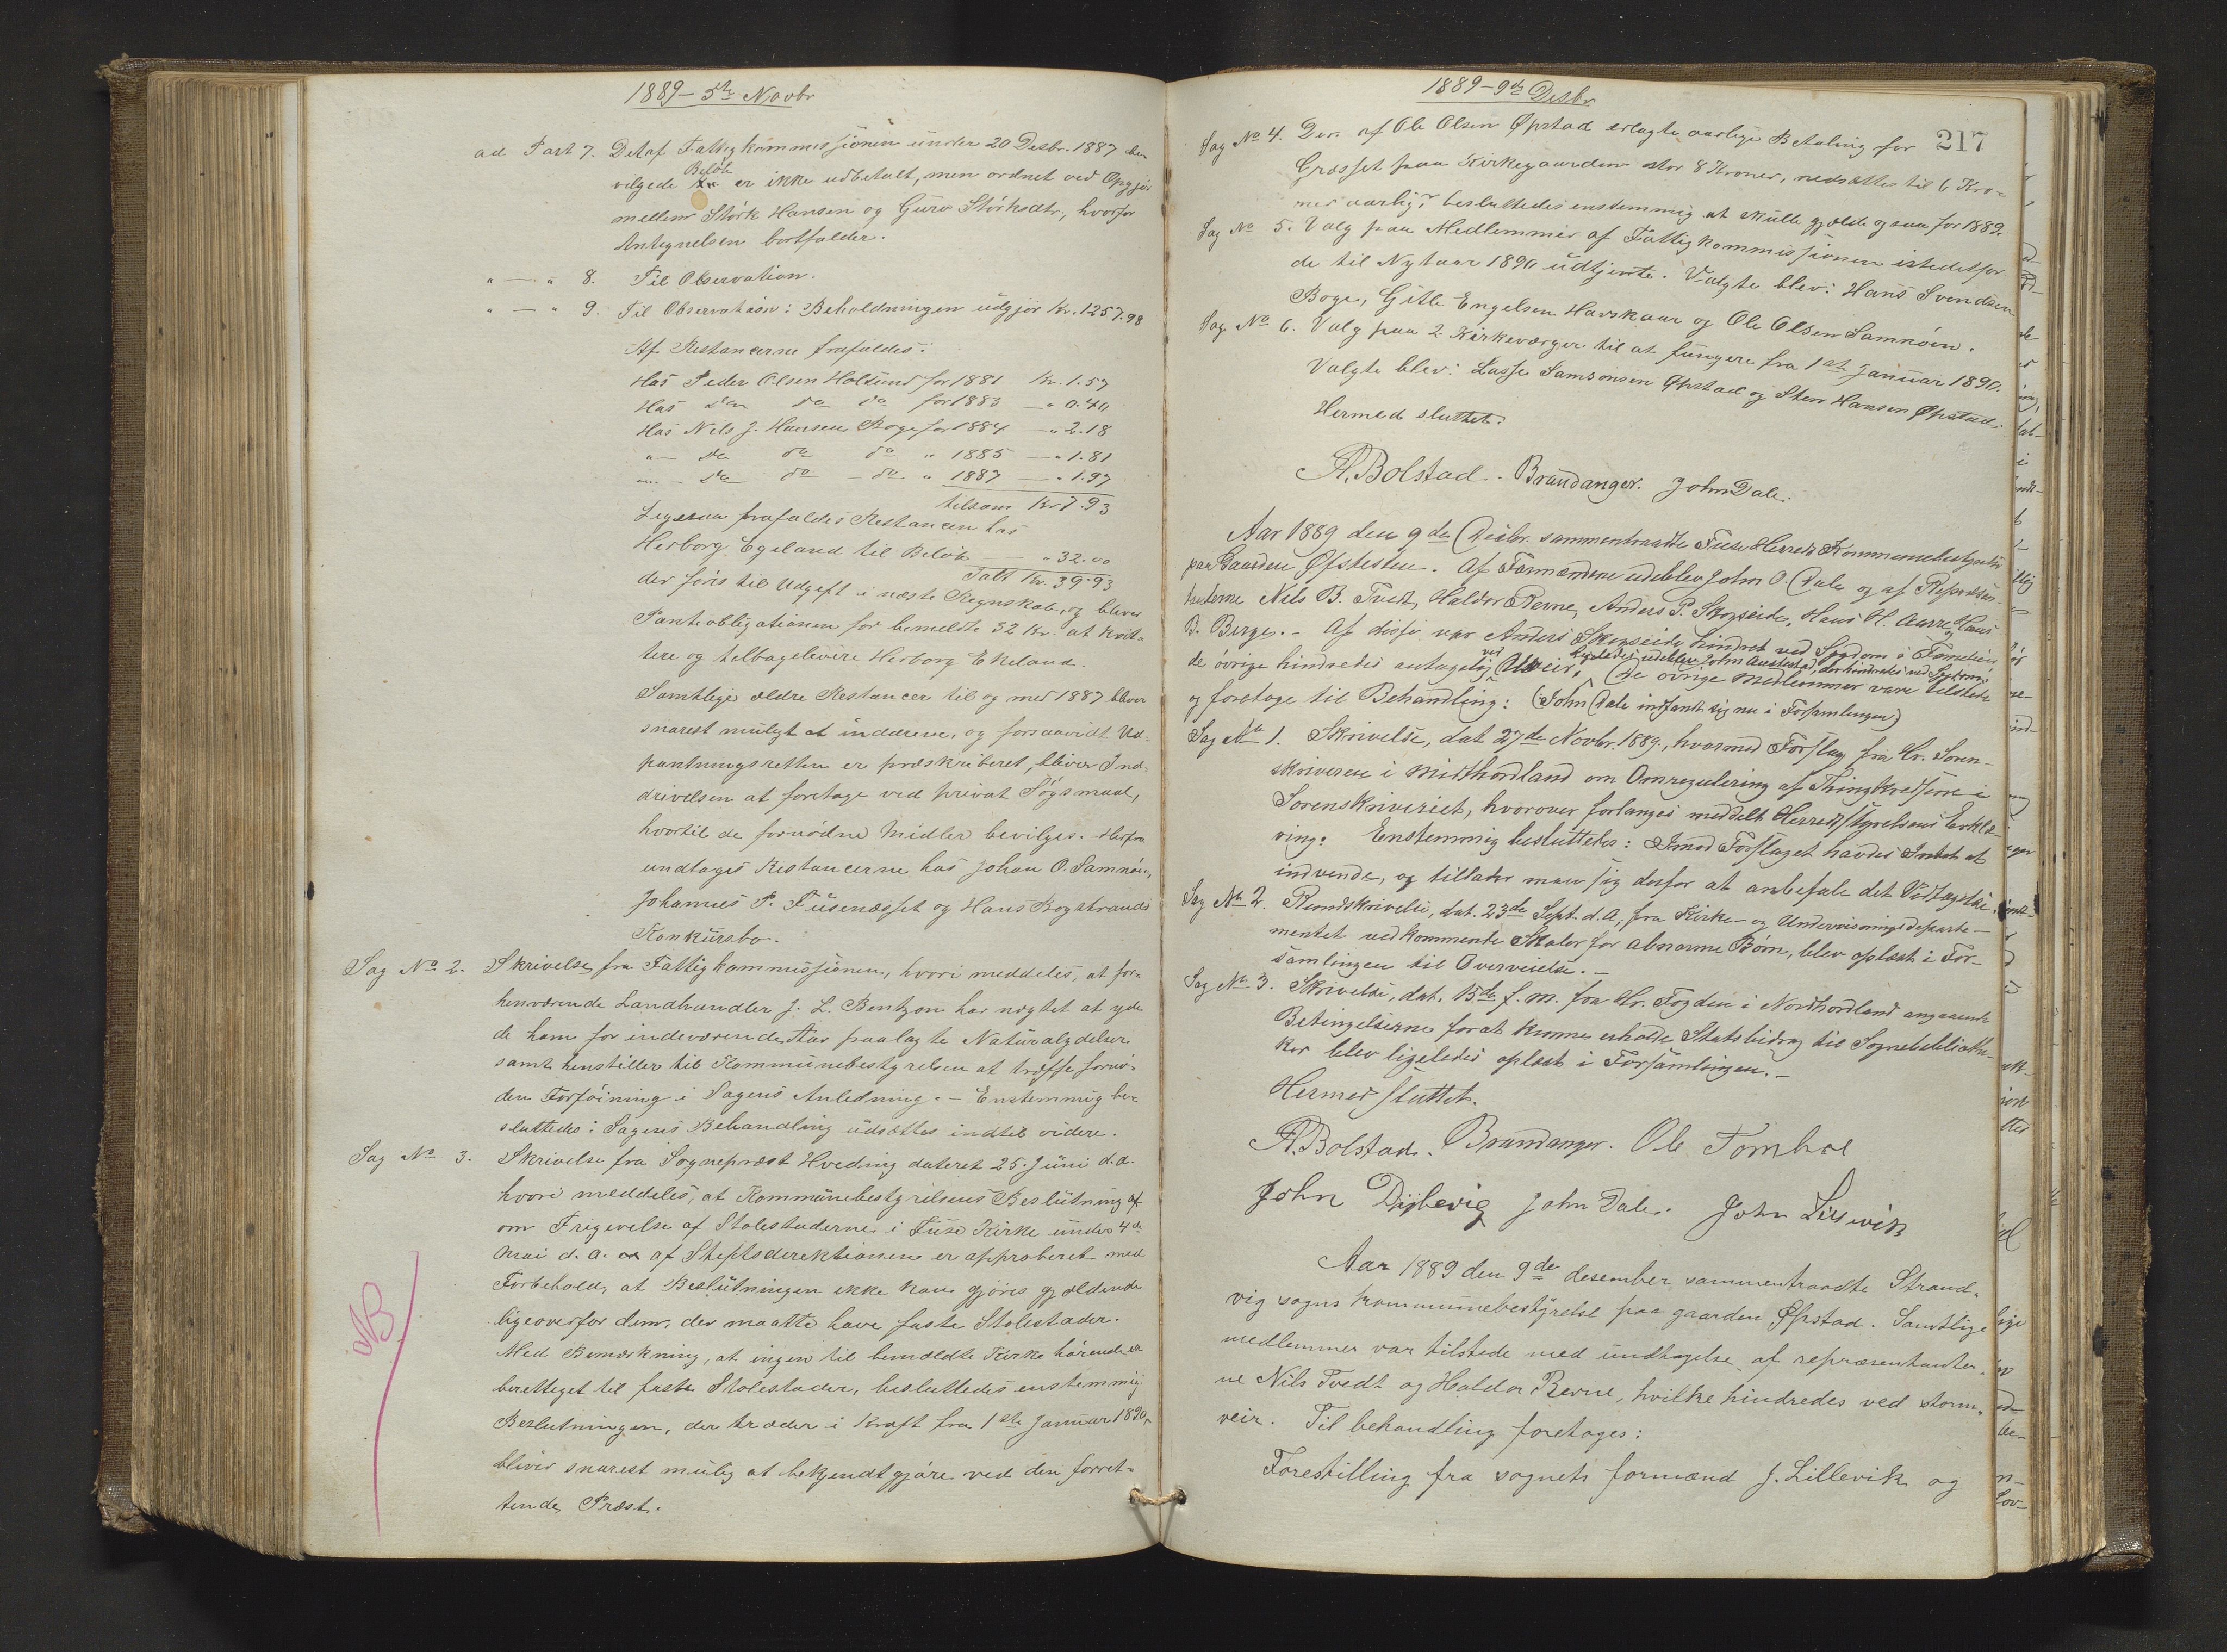 1889 - 5te Novbr
ad Post 7. Det af Fattigkommissionen under 20 Desbr. 1887 be-
vilgede Beløb er ikke udbetalt, men ordnet ved Opgjør
mellem Størk Hansen og Guro Størksdtr, hvorfor
Antegnelsen bortfalder.
" — " 8. Til Observation.
" — " 9. Til Observation: Beholdningen udgjør Kr. 1257.98
Af Restancerne frafaldes:
Hos Peder Olsen Holdund for 1881 Kr. 1.57
Hos do do do for 1883 — " 0.40
Hos Nils J. Hansen Boge for 1884 — " 2.18
" — do do do " 1885 — " 1.81
" — do do do " 1887 — " 1.97
tilsam Kr 7.93
Ligesaa frafaldes Restancen hos
Herborg Egeland til Beløb — " 32.00
Ialt Kr. 39.93
der føres til Udgift i næste Regnskab, og bliver
Panteobligationen for bemeldte 32 Kr. at kvit-
tere og tilbagelevere Herborg Ekeland.
Samtlige ældre Restancer til og med 1887 bliver
snarest muligt at inddrive, og forsaavidt Ud-
pantningsretten er præskriberet, bliver Ind-
drivelsen at foretage ved privat Søgsmaal,
hvortil de fornødne Midler bevilges. - Herfra
undtages Restancerne hos Johan O. Samnøen,
Johannes P. Fusenæsset og Hans Bogstrands
Konkursbo.
Sag No 2. Skrivelse fra Fattigkommissionen, hvori meddeles, at for-
henværende Landhandler J. L. Bentzon har nægtet at yde
de ham for indeværende Aar paalagte Naturalydelser
samt henstiller til Kommunebestyrelsen at træffe fornø-
den Forføining i Sagens Anledning. - Enstemmig be-
sluttedes: Sagens Behandling udsættes indtil videre.
Sag No 3. Skrivelse fra Sogneprest Hveding dateret 25. Juni d.a.
hvori meddeles, at Kommunebestyrelsens Beslutning af
om Frigivelse af Stolestaderne i Fuse Kirke under 4de
Mai d. a. af Stiftsdirektionen er approberet med
Forbehold, at Beslutningen ikke kan gjøres gjældende
ligeoverfor dem, der maatte have faste Stolestader.
Med Bemærkning, at ingen til bemældte Kirke hørende er
berettiget til faste Stolestader, besluttedes enstemmig
Beslutningen, der træder i Kraft fra 1ste Januar 1890,
bliver snarest mulig at bekjendtgjøre ved den forret-
tende Præst.
NB
1889 - 9de Desbr
217
Sag No 4. Den af Ole Olsen Øpstad erlagte aarlige Betaling for
Græsset paa Kirkegaarden stor 8 Kroner, nedsættes til 6 Kro-
ner aarlig, besluttedes enstemmig at skulle gjælde ogsaa for 1889.
Sag No 5. Valg paa Medlemmer af Fattigkommissionen istedetfor
de til Nytaar 1890 udtjente. Valgte blev: Hans Svendsen
Boge, Gitle Engelsen Havskaar og Ole Olsen Samnøen.
Sag No 6. Valg paa 2 Kirkeværger til at fungere fra 1ste Januar 1890.
Valgte blev: Lasse Samsonsen Øpstad og Sten Hansen Øpstad.
Hermed sluttet.
A. Bolstad. Brandanger. John Dale.
Aar 1889 den 9de Desbr. sammentraadte Fuse Herreds Kommunebestyrelse
paa Gaarden Øfstestuen. Af Formændene udeblev John O. Dale og af Repræsen-
tanterne Nils B. Tvedt, Haldor Revne, Anders P. Skogseide, Hans H. Aarre og Hans
D. Berge. - Af disse var Anders Skogseide hindret ved Sygdom i Familien
ligeledes udeblev John Austestad, der hindredes ved Sygdom;
de øvrige hindredes antagelig ved Uveir. De øvrige Medlemmer vare tilstede
og foretoge til Behandling: (John Dale indfandt sig nu i Forsamlingen)
Sag No 1. Skrivelse, dat 27de Novbr. 1889, hvormed Forslag fra Hr. Soren-
skriveren i Midthordland om Omregulering af Thingkredsene i
Sorenskriveriet, hvorover forlanges meddelt Herredsstyrelsens Erklæ-
ring: Enstemmig besluttedes: Imod Forslaget havdes Intet at
indvende, og tillader man sig derfor at anbefale det Vedtagelse.
Sag No 2. Rundskrivelse, dat. 23de Sept. d. A, fra Kirke- og Undervisningsdeparte-
mentet vedkommende Skoler for abnorme Børn, blev oplæst i For-
samlingen til Overveielse. -
Sag No 3. Skrivelse, dat. 15de f. m. fra Hr. Fogden i Nordhordland angaaende
Betingelserne for at kunne erholde Statsbidrag til Sognebibliothe-
ker blev ligeledes oplæst i Forsamlingen. -
Hermed sluttet.
A. Bolstad. Brandanger. Ole Tombre
John Dyslevig John Dale. John Lillevik
Aar 1889 den 9de desember sammentraadte Strand-
vig sogns kommunebestyrelse paa gaarden Øpstad. Samtlige
medlemmer var tilstede med undtagelse af repræsentanter-
ne Nils Tvedt og Haldor Revne, hvilke hindredes ved storm-
veir. Til behandling foretoges:
Forestilling fra sognets formænd J. Lillevik og